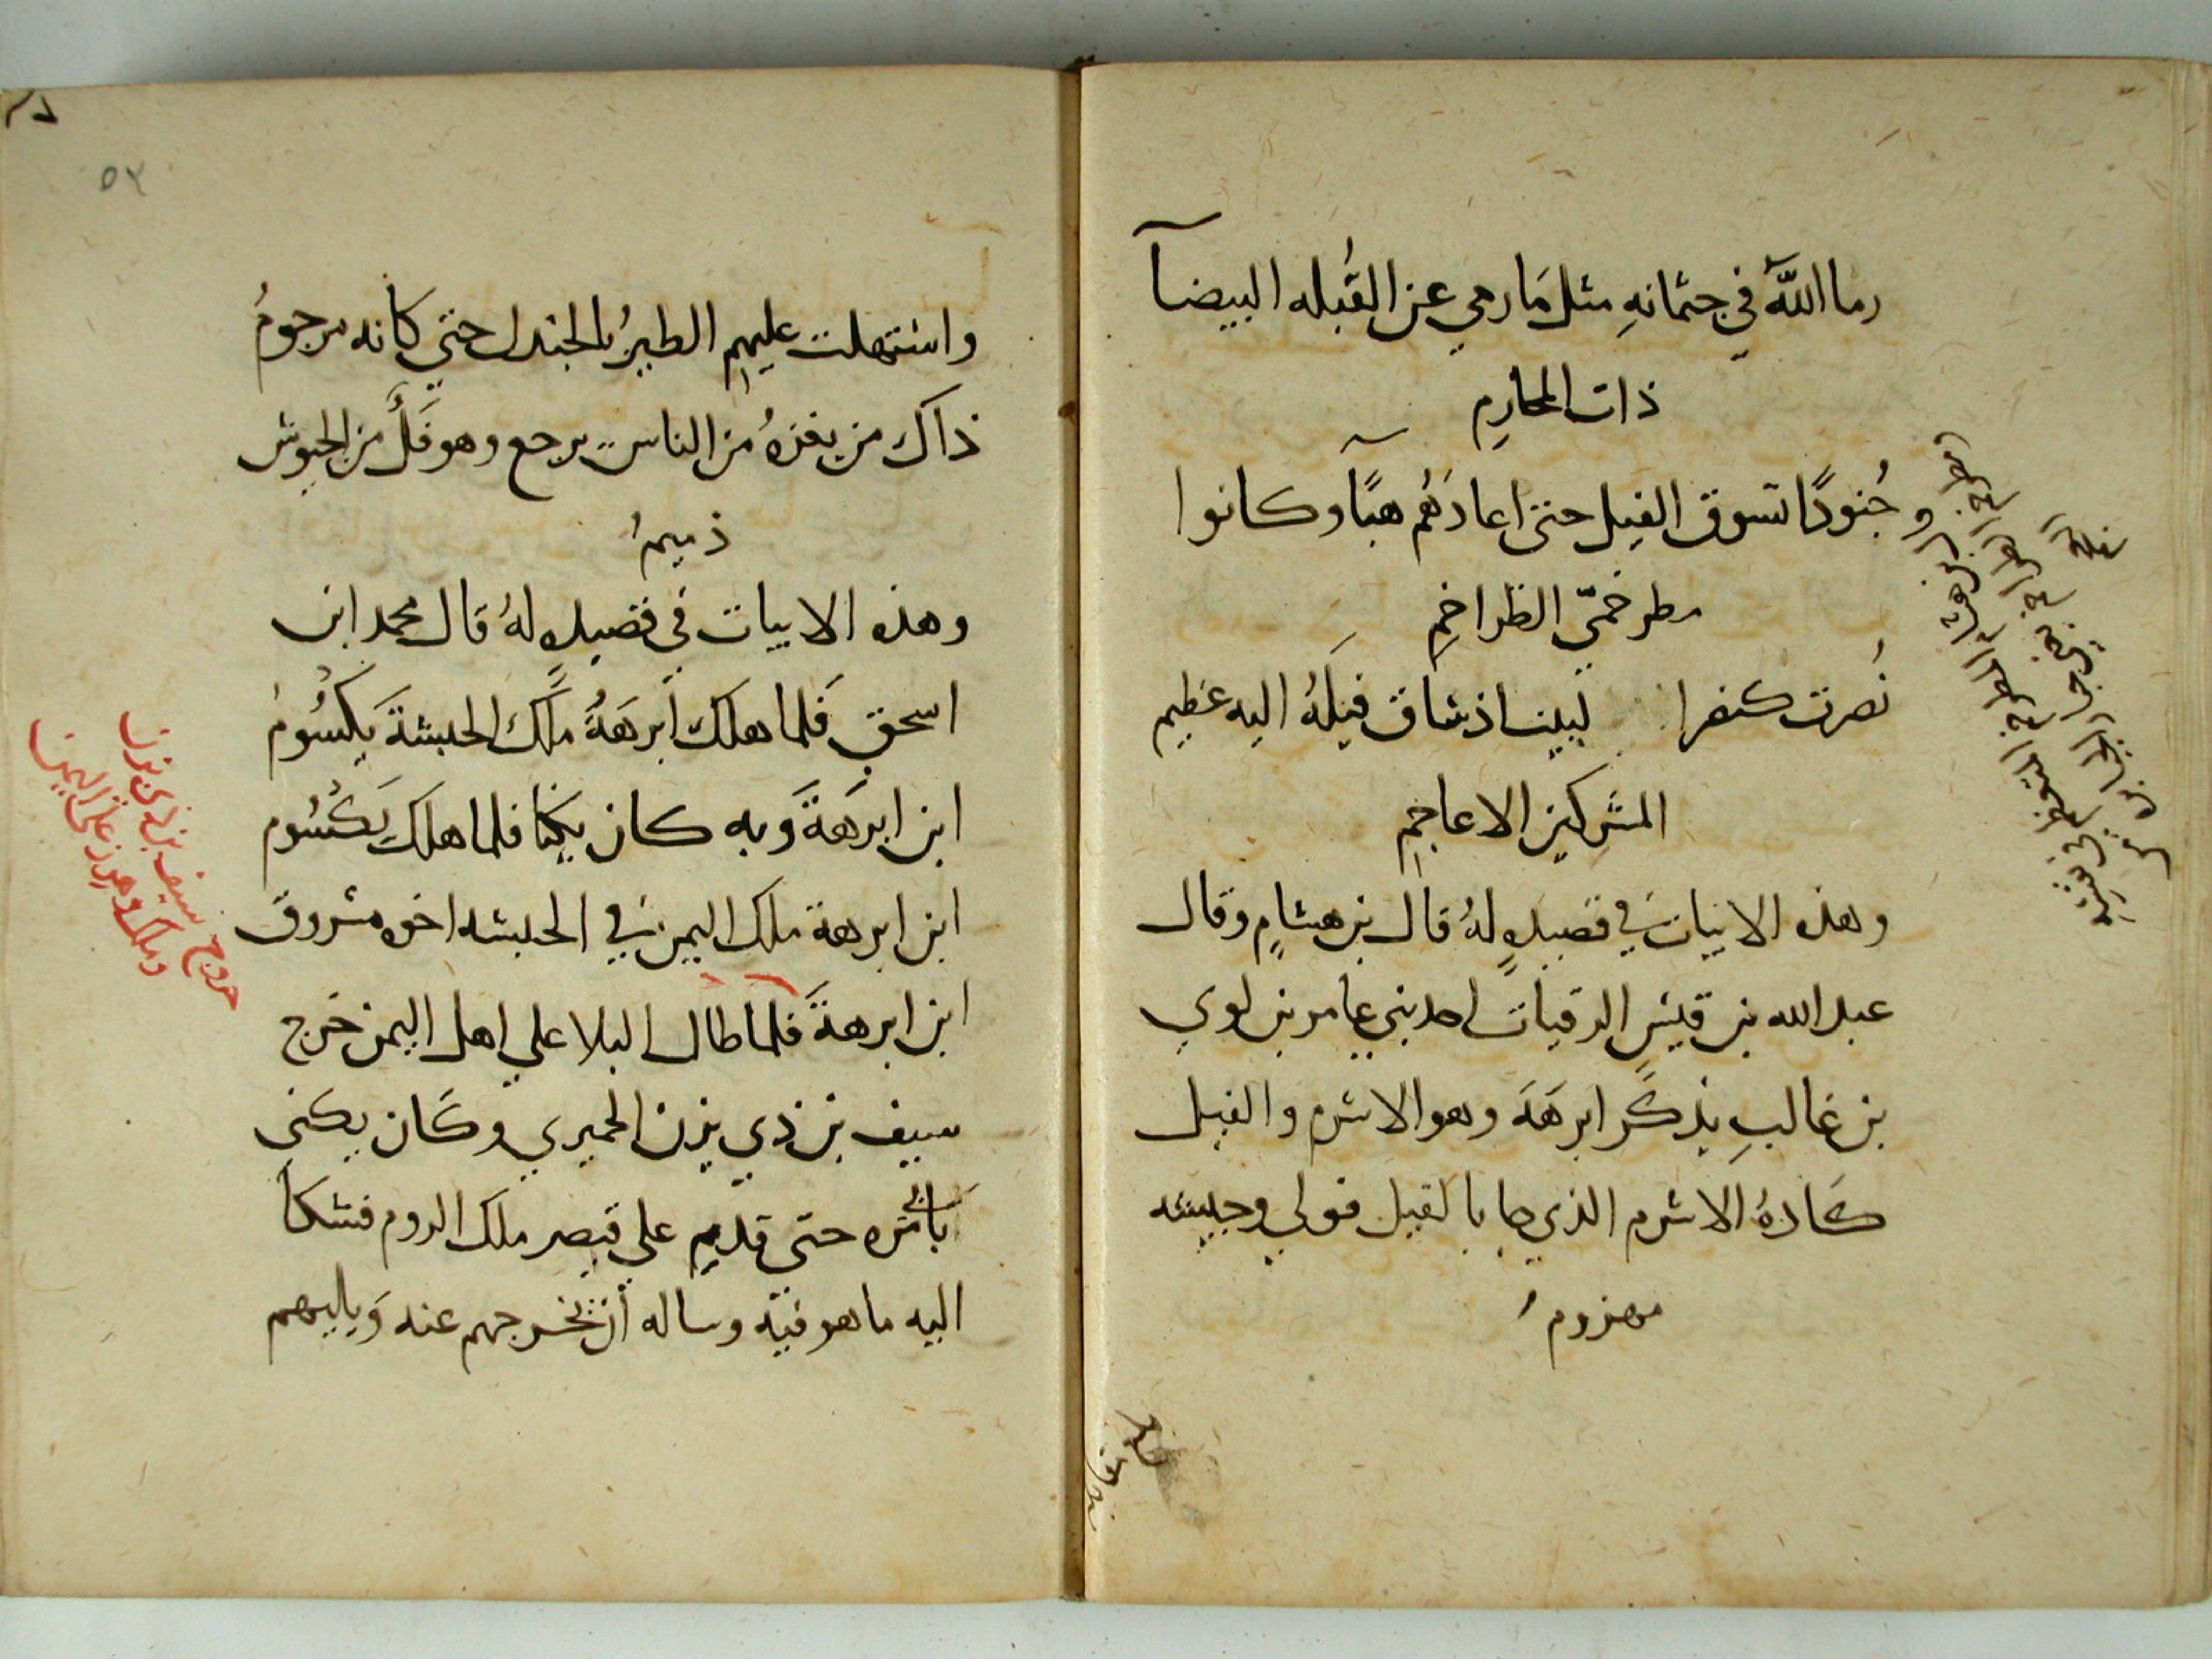 رما اللهُ في جثمانهِ مثل مَا رمي عن القُبله البيضآ
ذات المحارِم
جُنودًا تسوق الفيل حتى اعادَهُم هبًآ وكانوا
مطرخمّي الطراخمِ
نُصرت كنصر البيت اذ ساق فيلَهُ اليه عظيم
المشركين الاعاجمِ
وهذه الابيات في قصيدةٍ لهُ قال بن هشامٍ وقال
عبد الله بن قيسِ الرقيات احد بني عامر بن لوي
بن غالبِ يذكر ابرهَة وهو الاشرم والفيل
كَادهُ الاشرم الذي جا بالفيل فولي وجيشه
مهزومُ
٥٢
واستهلت عليهم الطيرُ بالجندل حتي كانه مرجومُ
ذاك من يغزهُ من الناس يرجع وهو فَلٌّ من الجيوش
ذميمُ
وهذه الابيات في قصيدةٍ لهُ قال محمد ابن
اسحق فَلما هلك ابرهَةُ ملك الحبشةَ يكسُومُ
ابن ابرهَةَ وبه كان يكنا فلما هلك يَكسُوم
ابن ابرهة ملك اليمن في الحبشه اخوه مسروق
ابن ابرهةَ فلما طال البلا علي اهل اليمن خرج
سيف بن ذي يزن الحميري وكَان يكني
بابي مُره حتى قدم على قيصر ملك الروم فشكا
اليه ما هو فيه وساله أن يخرجهم عنه وَيليهم
خروج سيف بن ذي يزن
وملك وهرز على اليمن